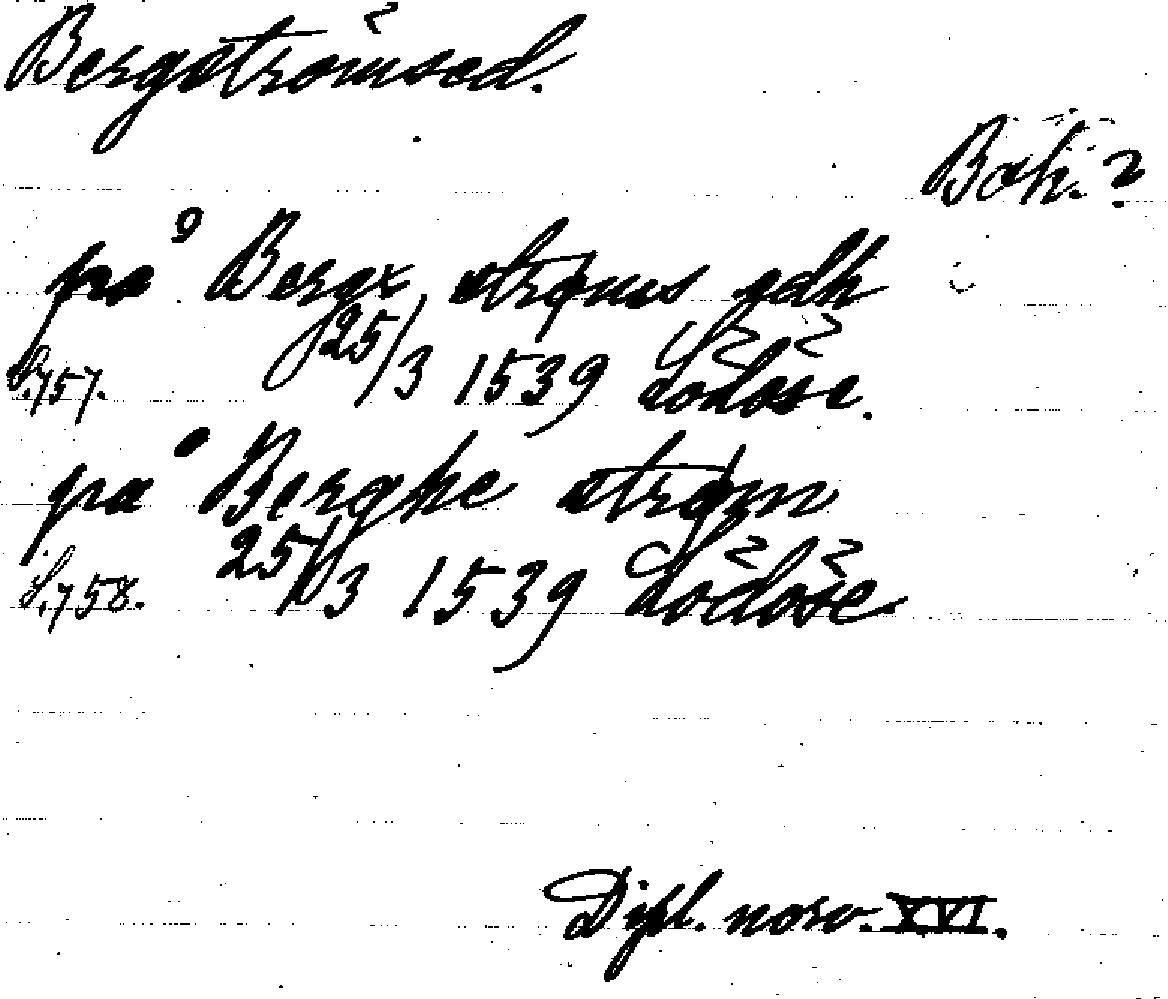 Bergströmsed.
Boh.?
på Bergx strøms edh
S.757. 25/3 1539 Lödöse.
på Berghe strøm
S.758. 25/3 1539 Lödöse
Dipl. norv. XVI.